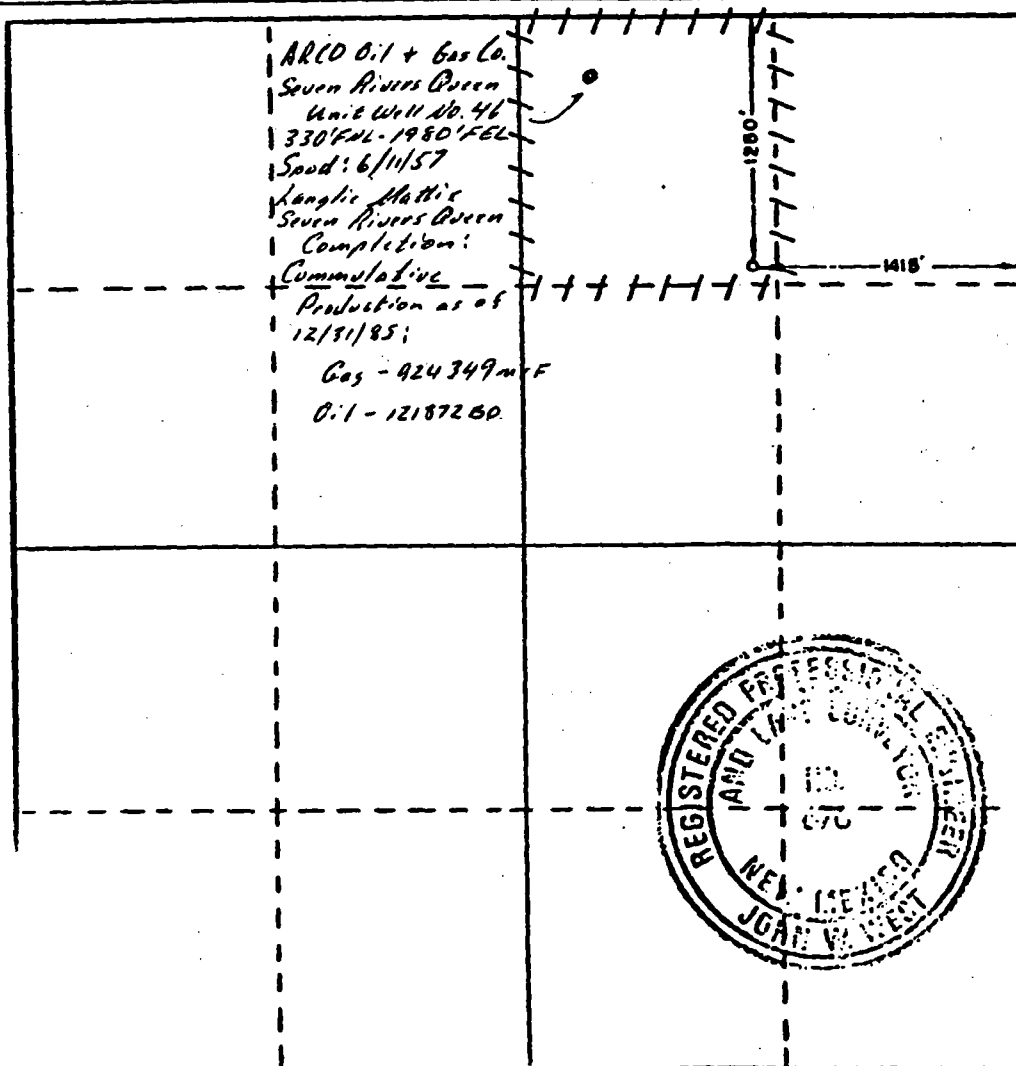 ARCO Oil + Gas Co.
Seven Rivers Queen
Unit Well No. 46
330'FNL - 1980'FEL
Spud: 6/11/57
Langlie Mattix
Seven Rivers Queen
Completion:
Cummulative
Production as of
12/31/85:
Gas - 924349 mcF
Oil - 121872 BO
1280'
1415'
REGISTERED PROFESSIONAL ENGINEER
AND LAND SURVEYOR
NO.
676
NEW MEXICO
JOHN W. WEST